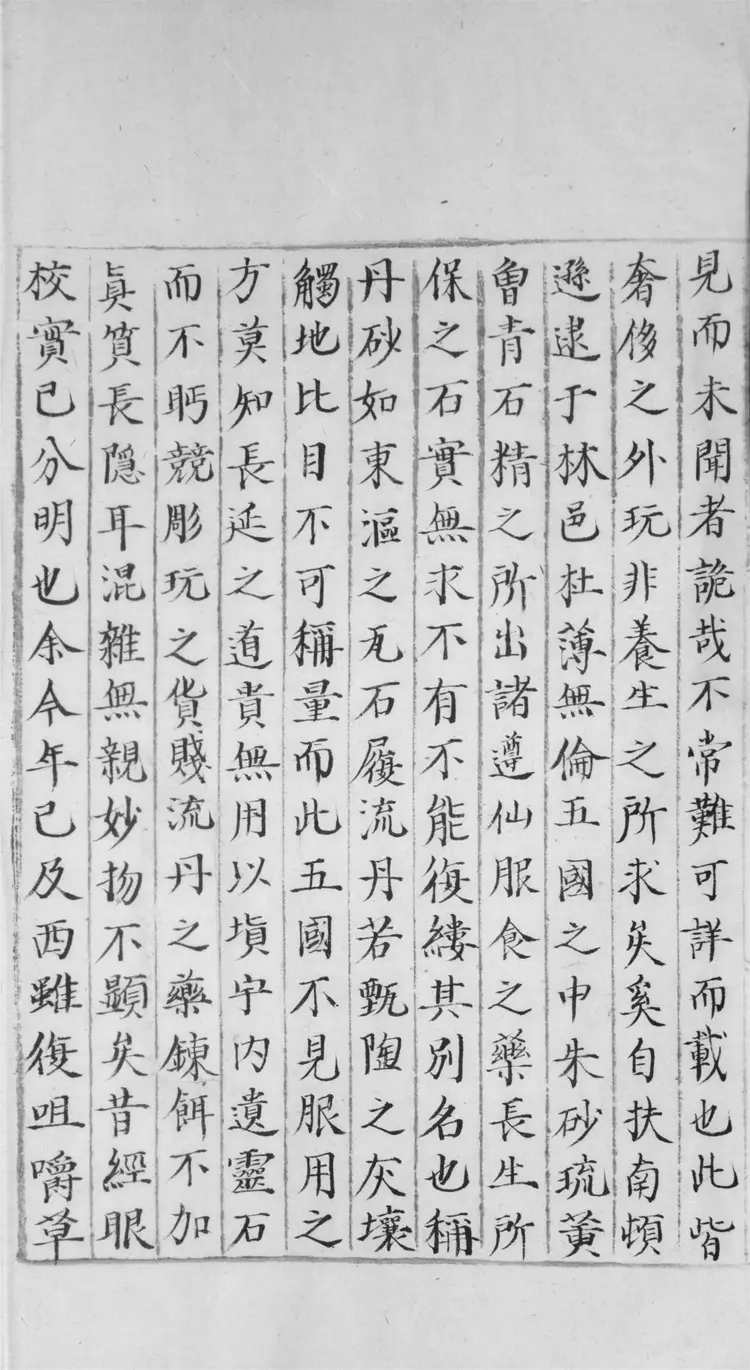 見而未聞者詭哉不常難可詳而載也此皆
奢侈之外玩非養生之所求矣奚自扶南頓
遜逮于林邑杜薄無倫五國之中朱砂琉黃
曾青石精之所出諸遵仙服食之藥長生所
保之石實無求不有不能復縷其別名也稱
丹砂如東漚之瓦石履流丹若甄陶之灰壤
觸地比目不可稱量而此五國不見服用之
方莫知長延之道貴無用以塡宇內遺靈石
而不眄競彫玩之貨賤流丹之藥鍊餌不加
眞質長隱耳混雜無親妙物不顯矣昔經眼
校實已分明也余今年已及西雖復咀嚼草